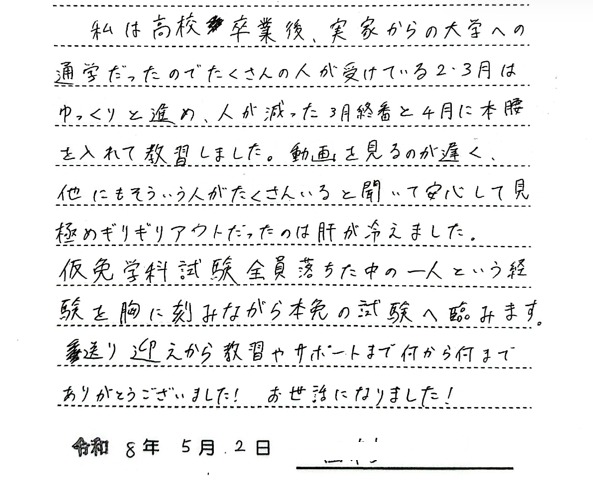 私は高校卒業後、実家からの大学への
通学だったのでたくさんの人が受けている2・3月は
ゆっくりと進め、人が減った3月終番と4月に本腰
を入れて教習しました。動画を見るのが遅く、
他にもそういう人がたくさんいると聞いて安心して見
極めギリギリアウトだったのは肝が冷えました。
仮免学科試験全員落ちた中の一人という経
験を胸に刻みながら本免の試験へ臨みます。
送り迎えから教習やサポートまで何から何まで
ありがとうございました! お世話になりました!
令和 8年 5月 2日